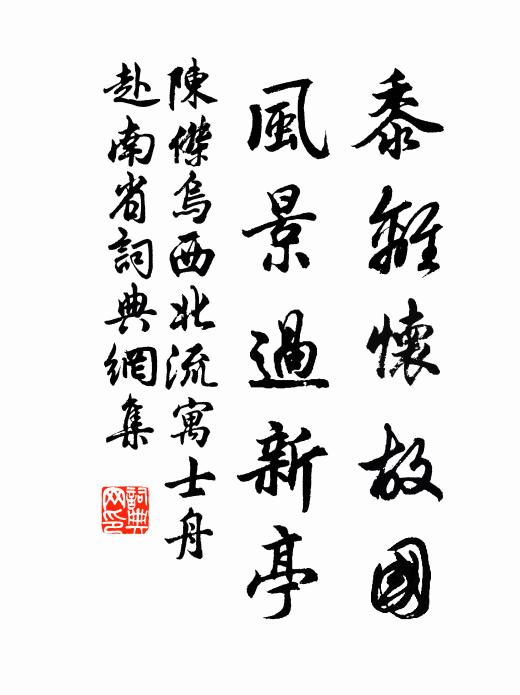 黍離懷故國
風景過新亭
陳傑烏西北流寓士舟
赴南省詞典網集
詞典網印